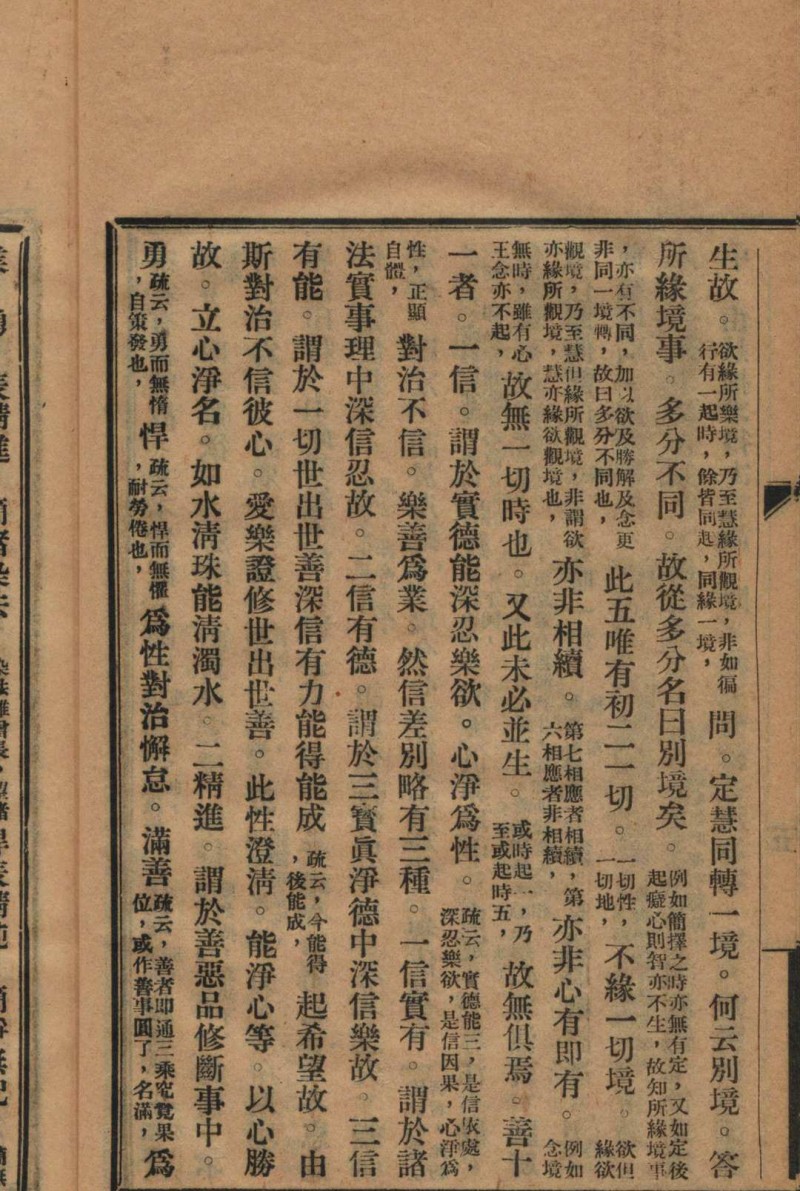 生故。欲緣所樂境，乃至慧緣所觀境，非如徧行有一起時，餘皆同起，同緣一境，問。定慧同轉一境。何云別境。答
所緣境事。多分不同。故從多分名曰別境矣。例如簡擇之時亦無有定，又如定後起癡心則智亦不生，故知所緣境事
，亦有不同，加以欲及勝解及念更非同一境轉，故曰多分不同也，此五唯有初二一切。一切性，一切地，不緣一切境。欲但緣欲
觀境，乃至慧但緣所觀境，非謂欲亦緣所觀境，慧亦緣欲觀境也，亦非相續。第七相應者相續，第六相應者非相續，亦非心有即有。例如念境
無時，雖有心王念亦不起，故無一切時也。又此未必並生。或時起一，乃至或起時五，故無俱焉。善十
一者。一信。謂於實德能深忍樂欲。心淨爲性。疏云，實德能三，是信依處，深忍樂欲，是信因果，心淨爲
性，正顯自體，對治不信。樂善爲業。然信差別略有三種。一信實有。謂於諸
法實事理中深信忍故。二信有德。謂於三寶眞淨德中深信樂故。三信
有能。謂於一切世出世善深信有力能得能成，疏云，今能得，後能成，起希望故。由
斯對治不信彼心。愛樂證修世出世善。此性澄淸。能淨心等。以心勝
故。立心淨名。如水淸珠能淸濁水。二精進。謂於善惡品修斷事中。
勇疏云，勇而無惰，自策發也，悍疏云，悍而無懼，耐勞倦也，爲性對治懈怠。滿善疏云，善者即通三乘究竟果位，或作善事圓了，名滿，爲